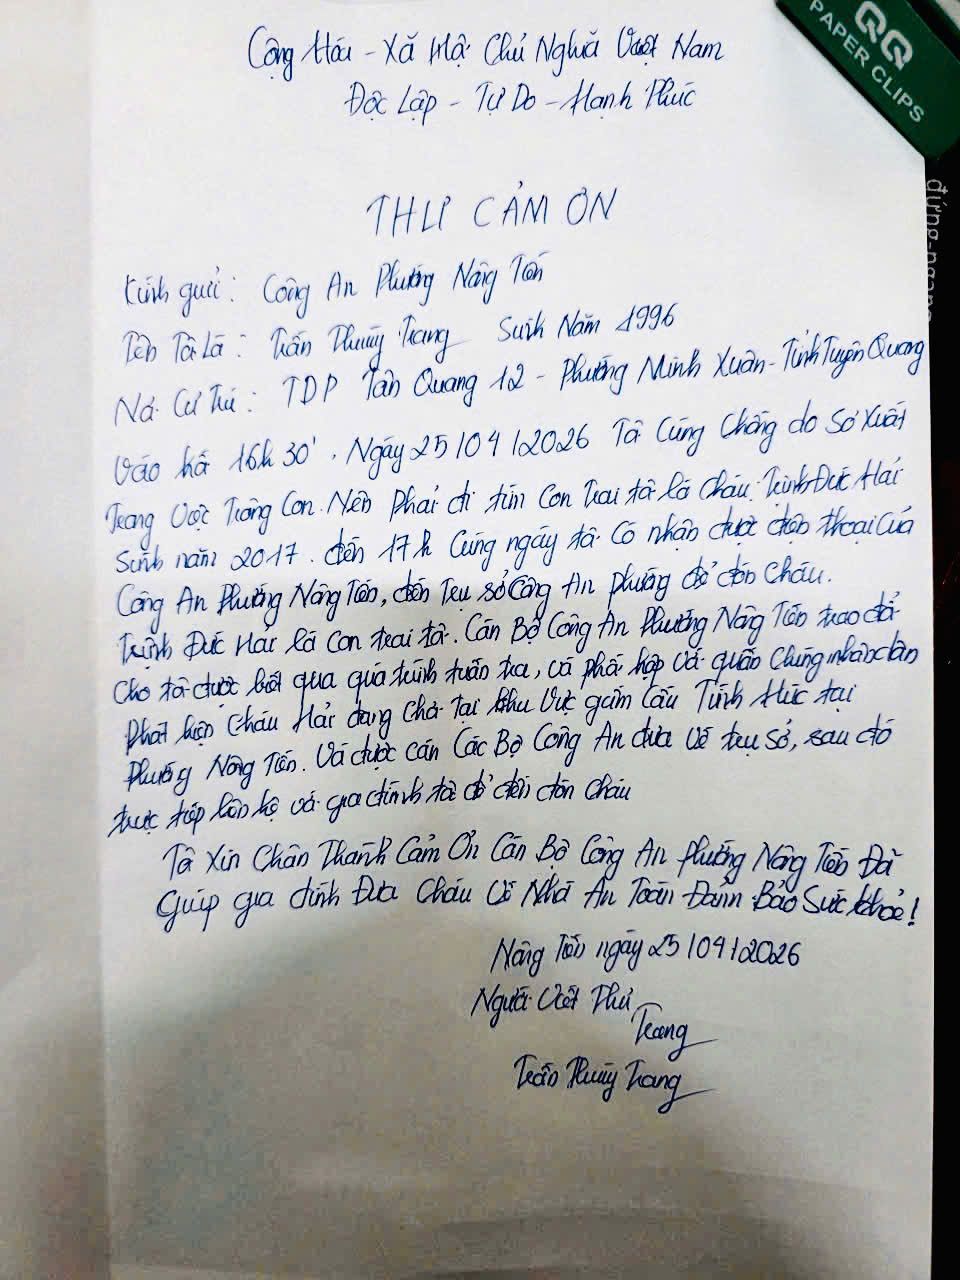 QQ
PAPER CLIPS
đứng-ngang
Cộng Hòa - Xã Hội Chủ Nghĩa Việt Nam
Độc Lập - Tự Do - Hạnh Phúc
THƯ CẢM ƠN
Kính gửi: Công An Phường Nông Tiến
Tên Tôi Là: Trần Thuỳ Trang Sinh Năm 1996
Nơi Cư Trú: TDP Tân Quang 12 - Phường Minh Xuân - Tỉnh Tuyên Quang
Vào hồi 16h 30', Ngày 25/04/2026 Tôi Cùng Chồng do Sơ Xuất
Trong Việc Trông Con. Nên Phải đi tìm Con Trai tôi là Cháu Trịnh Đức Hải
Sinh năm 2017. đến 17h Cùng ngày tôi Có nhận được điện thoại của
Công An Phường Nông Tiến, đến Trụ sở Công An phường để đón Cháu.
Trịnh Đức Hải là Con trai tôi. Cán Bộ Công An Phường Nông Tiến trao đổi
Cho tôi được biết qua quá trình tuần tra, và phối hợp với quần Chúng nhân dân
Phát hiện Cháu Hải đang Chơi Tại khu vực gầm Cầu Tình Húc tại
Phường Nông Tiến. Và được cán Các Bộ Công An đưa Về trụ sở, sau đó
trực tiếp liên hệ với gia đình tôi để đến đón Cháu
Tôi Xin Chân Thành Cảm Ơn Cán Bộ Công An Phường Nông Tiến Đã
Giúp gia đình Đưa Cháu Về Nhà An Toàn Đảm Bảo Sức khỏe!
Nông Tiến ngày 25/04/2026
Người Viết Thư
Trang
Trần Thuỳ Trang